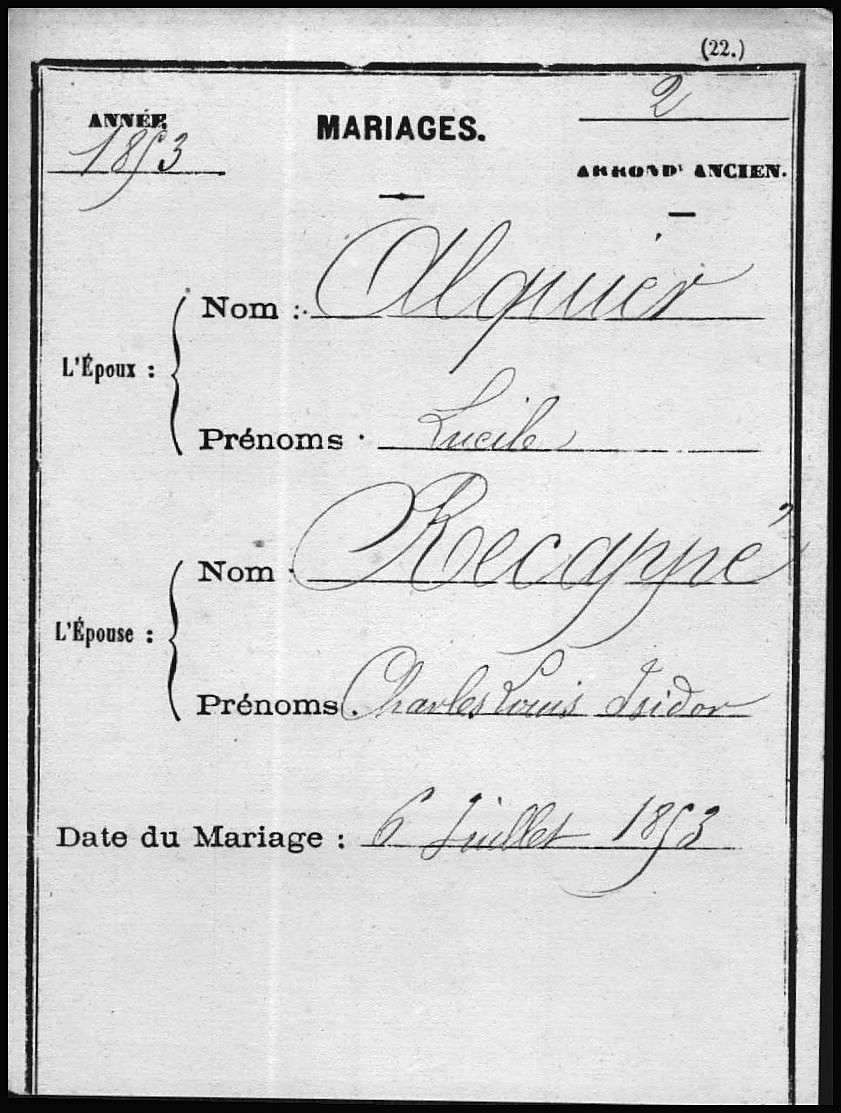 (22.)
ANNÉE
1853
MARIAGES.
2
ARRONDt ANCIEN.
L'Époux :
Nom :
Alquier
Prénoms :
Lucile
L'Épouse :
Nom :
Recappé
Prénoms :
Charles Louis Isidor
Date du Mariage : 6 Juillet 1853